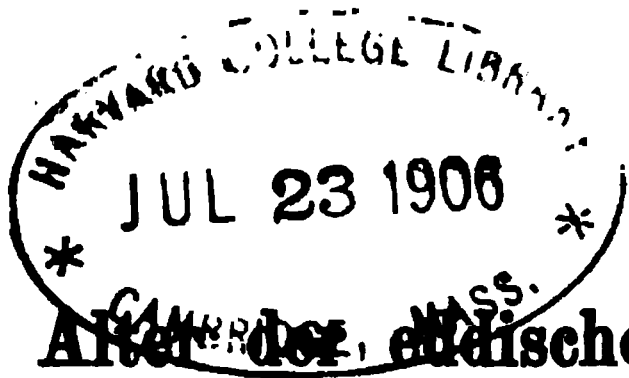 HARVARD COLLEGE LIBRARY
JUL 23 1906
* *
CAMBRIDGE, MASS.
Alter der eddische